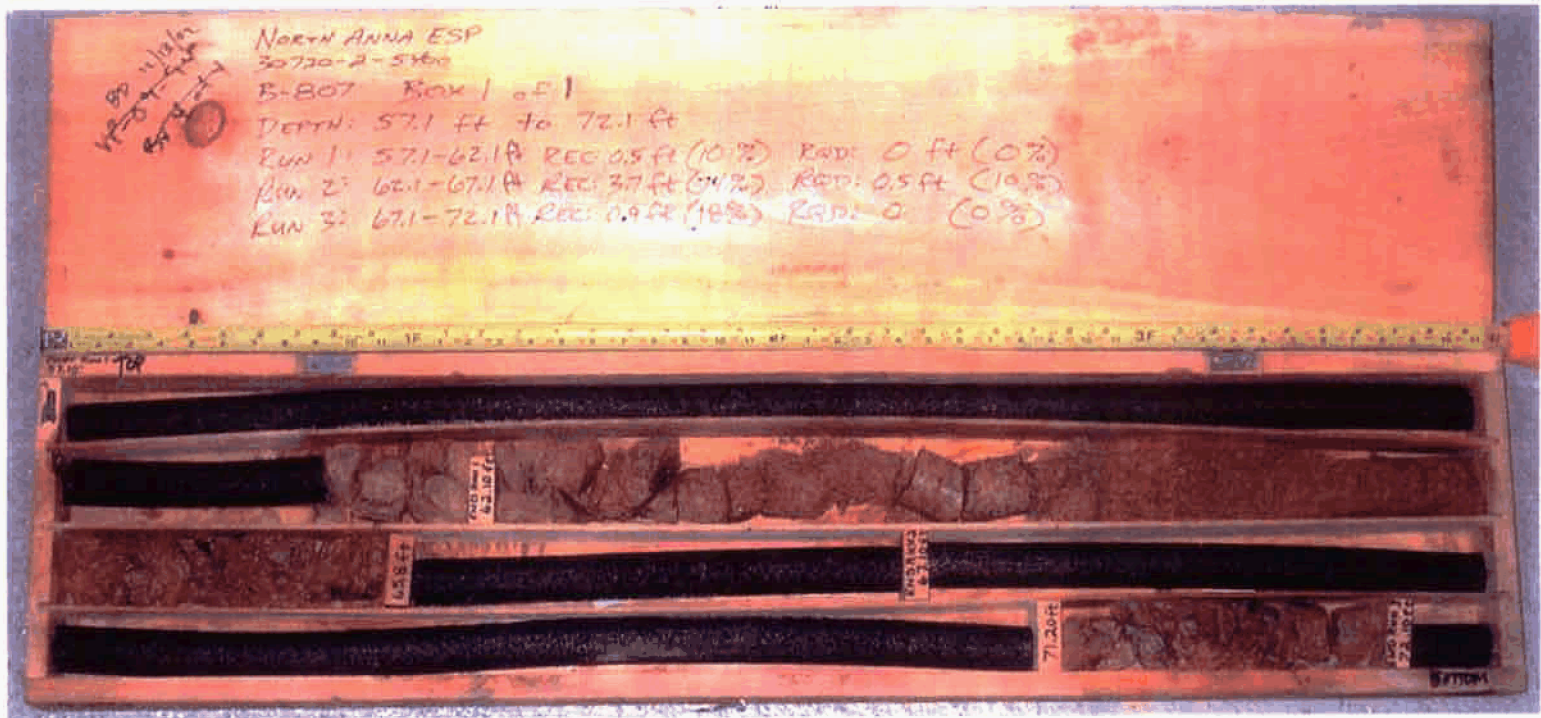 NORTH ANNA ESP
30720-2-5400
B-807 Box 1 of 1
DEPTH: 57.1 ft to 72.1 ft
RUN 1: 57.1-62.1 ft REC: 0.5 ft (10%) RQD: 0 ft (0%)
RUN 2: 62.1-67.1 ft REC: 3.7 ft (74%) RQD: 0.5 ft (10%)
RUN 3: 67.1-72.1 ft REC: 0.9 ft (18%) RQD: 0 (0%)
TOP
END RUN 1
62.10 ft
65.8 ft
END RUN 2
67.10 ft
71.20 ft
END RUN 3
72.10 ft
BOTTOM